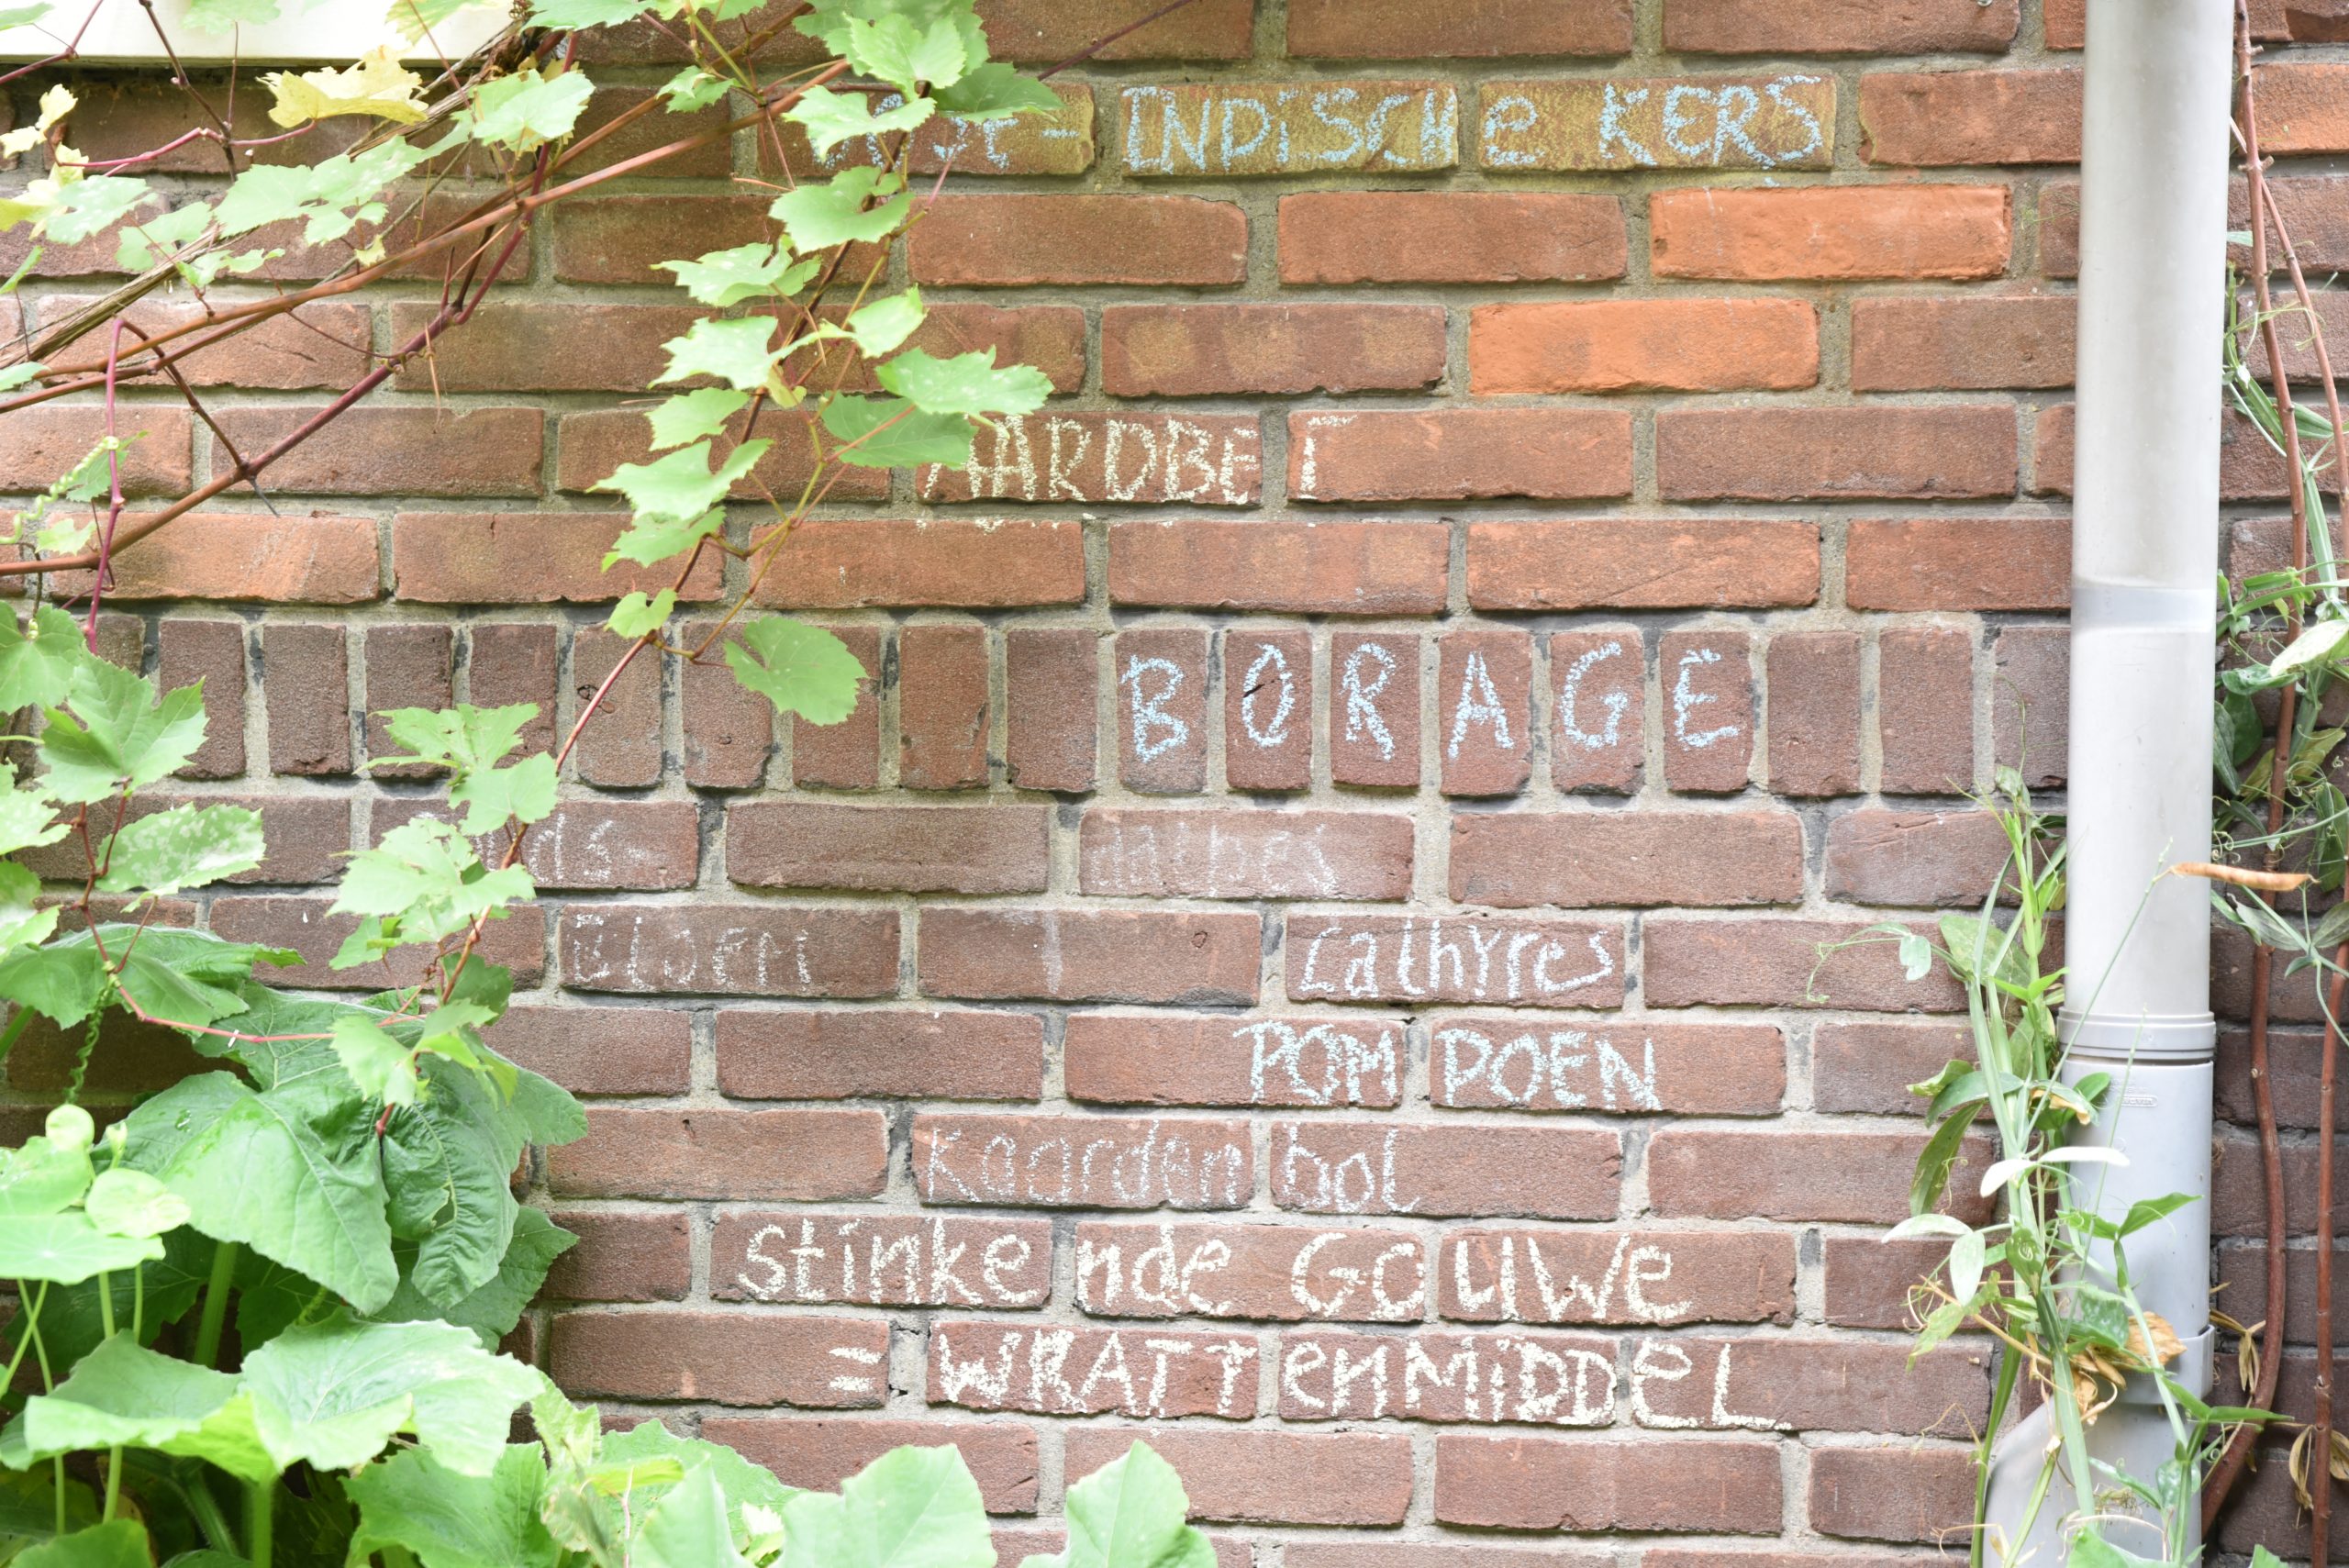 INDISCHE KERS
AARDBEI
BORAGE
BLOEM Lathyres
POMPOEN
Kaardenbol
Stinkende GOUWe
=WRATTenMiDDeL